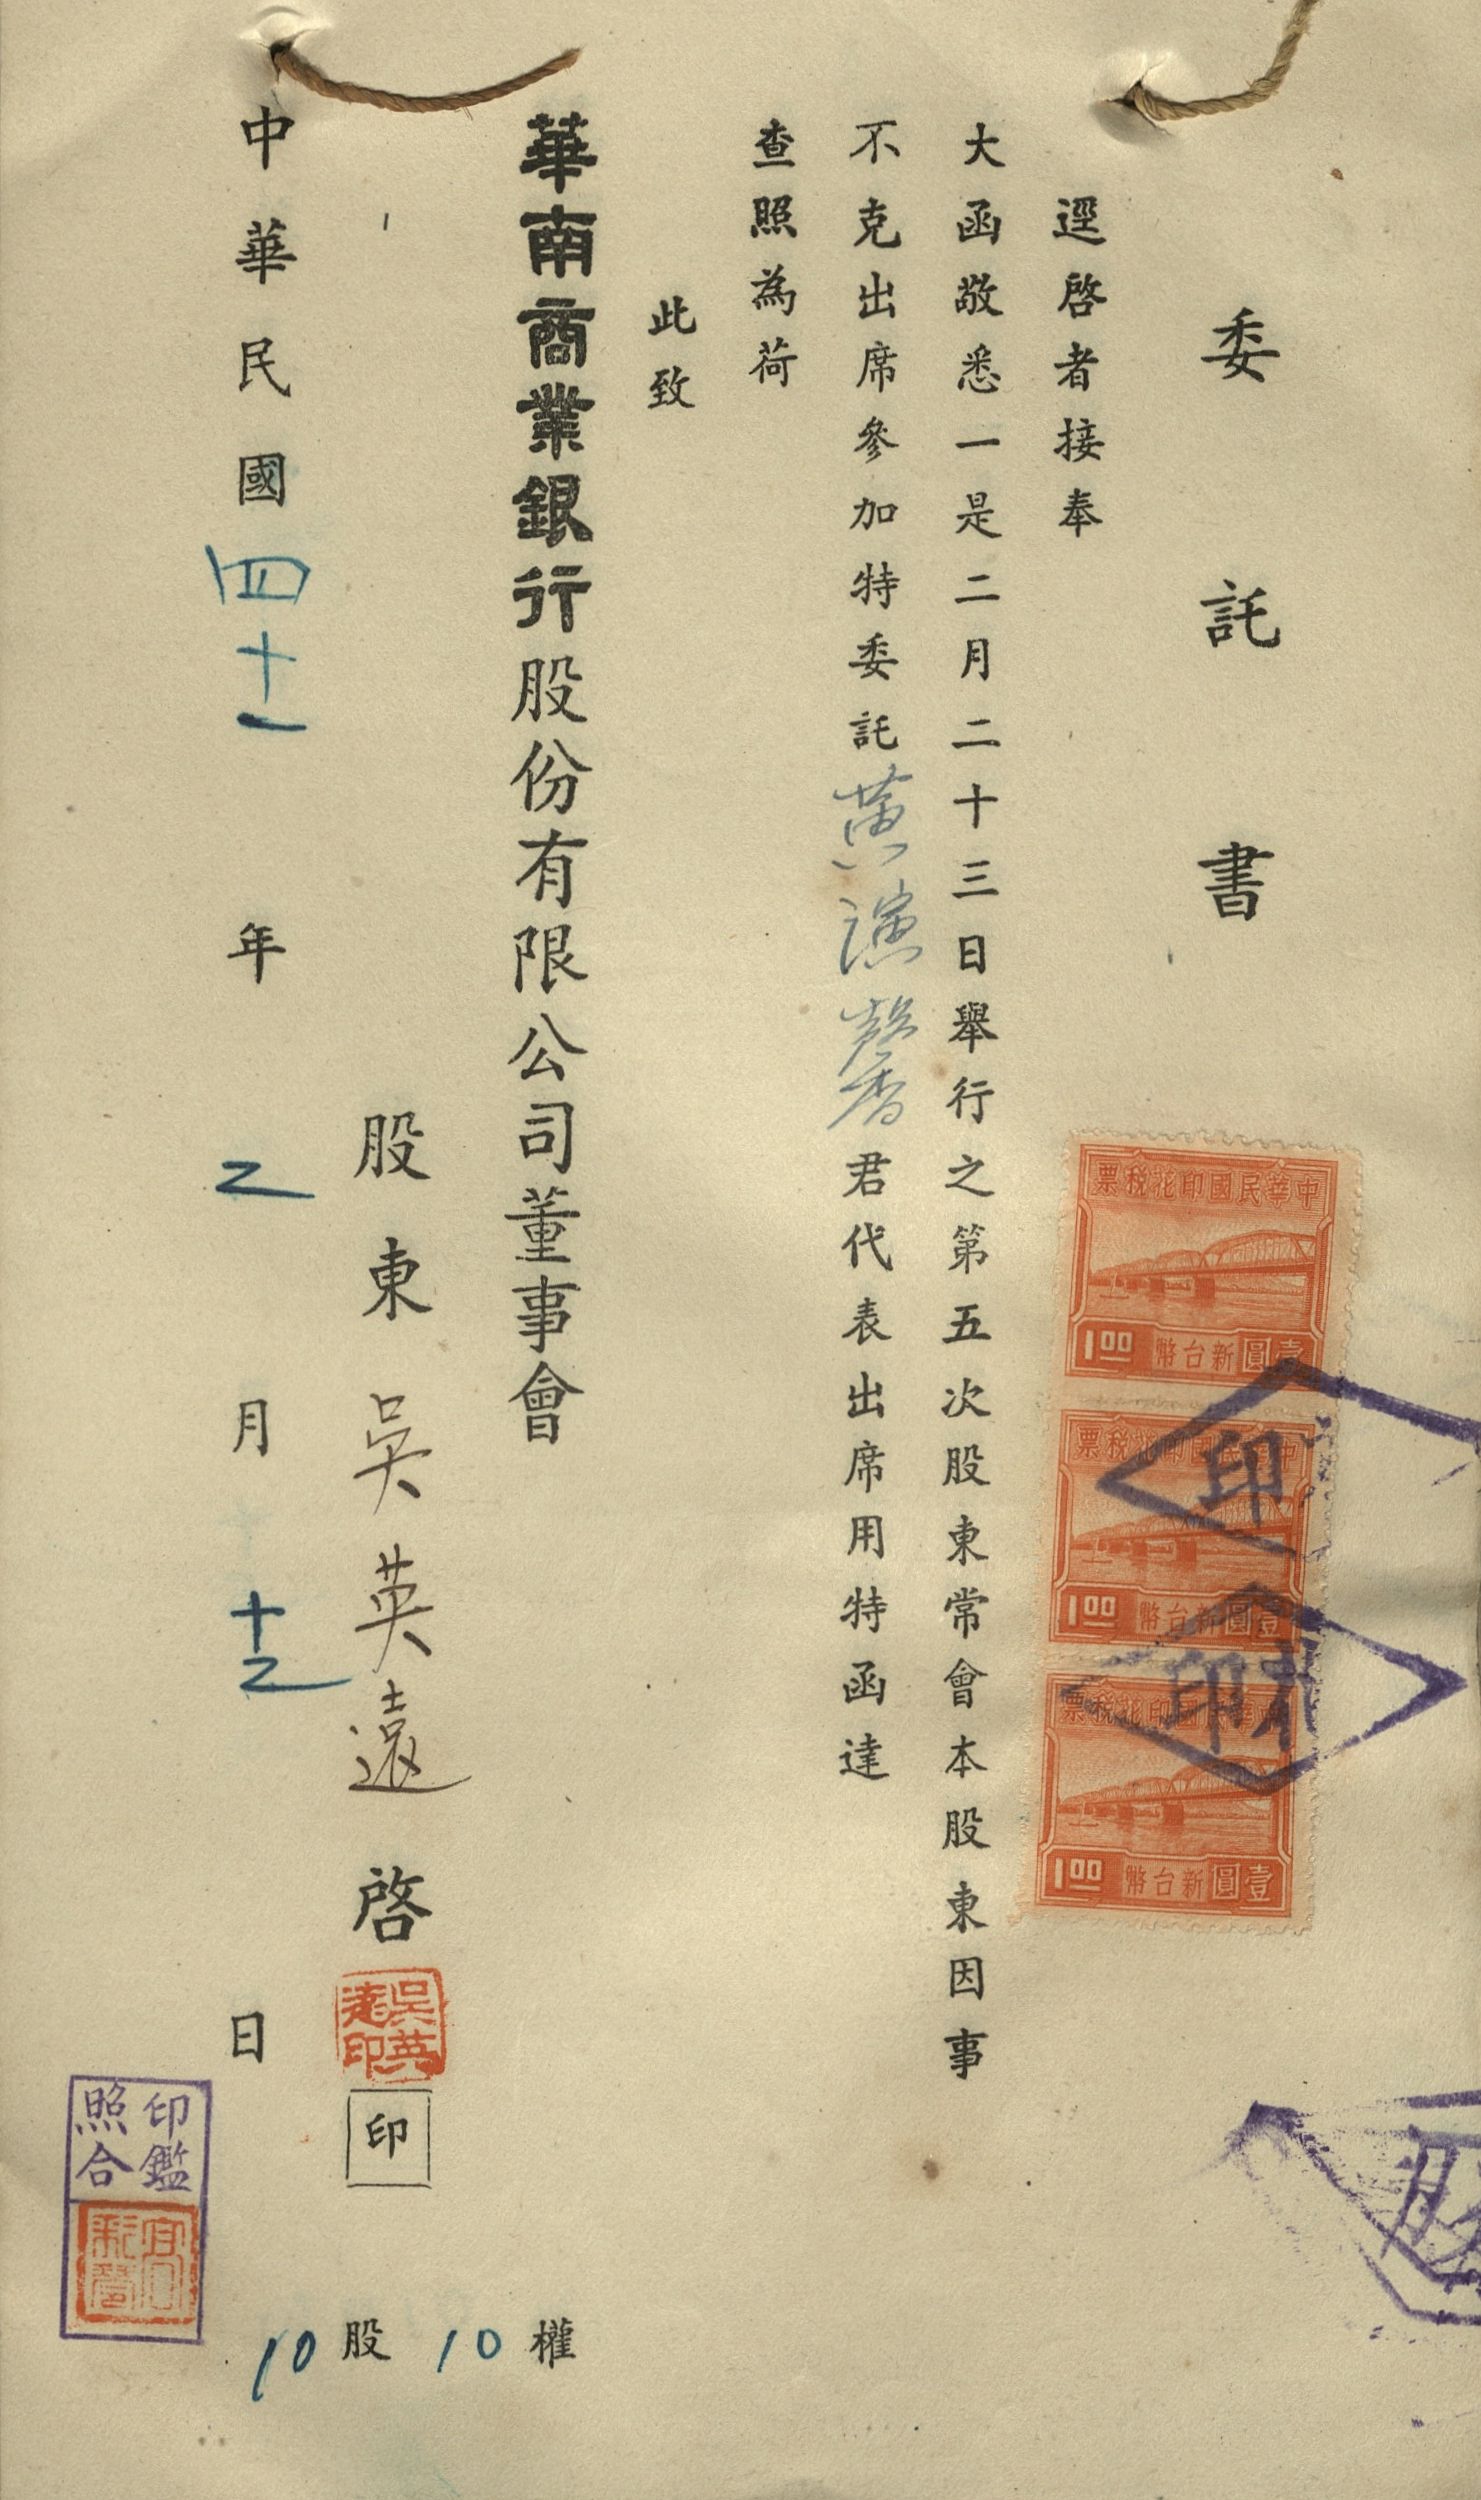 委託書
逕啓者接奉
大函敬悉一是二月二十三日舉行之第五次股東常會本股東因事
不克出席參加特委託黃演馨君代表出席用特函達
查照為荷
此致
華南商業銀行股份有限公司董事會
股東吳英遠啓
吳英遠印
印
中華民國四十一年二月十二日
10股10權
印鑑照合
中華民國印花稅票
1.00 壹圓新台幣
中華民國印花稅票
1.00 壹圓新台幣
中華民國印花稅票
1.00 壹圓新台幣
印
印